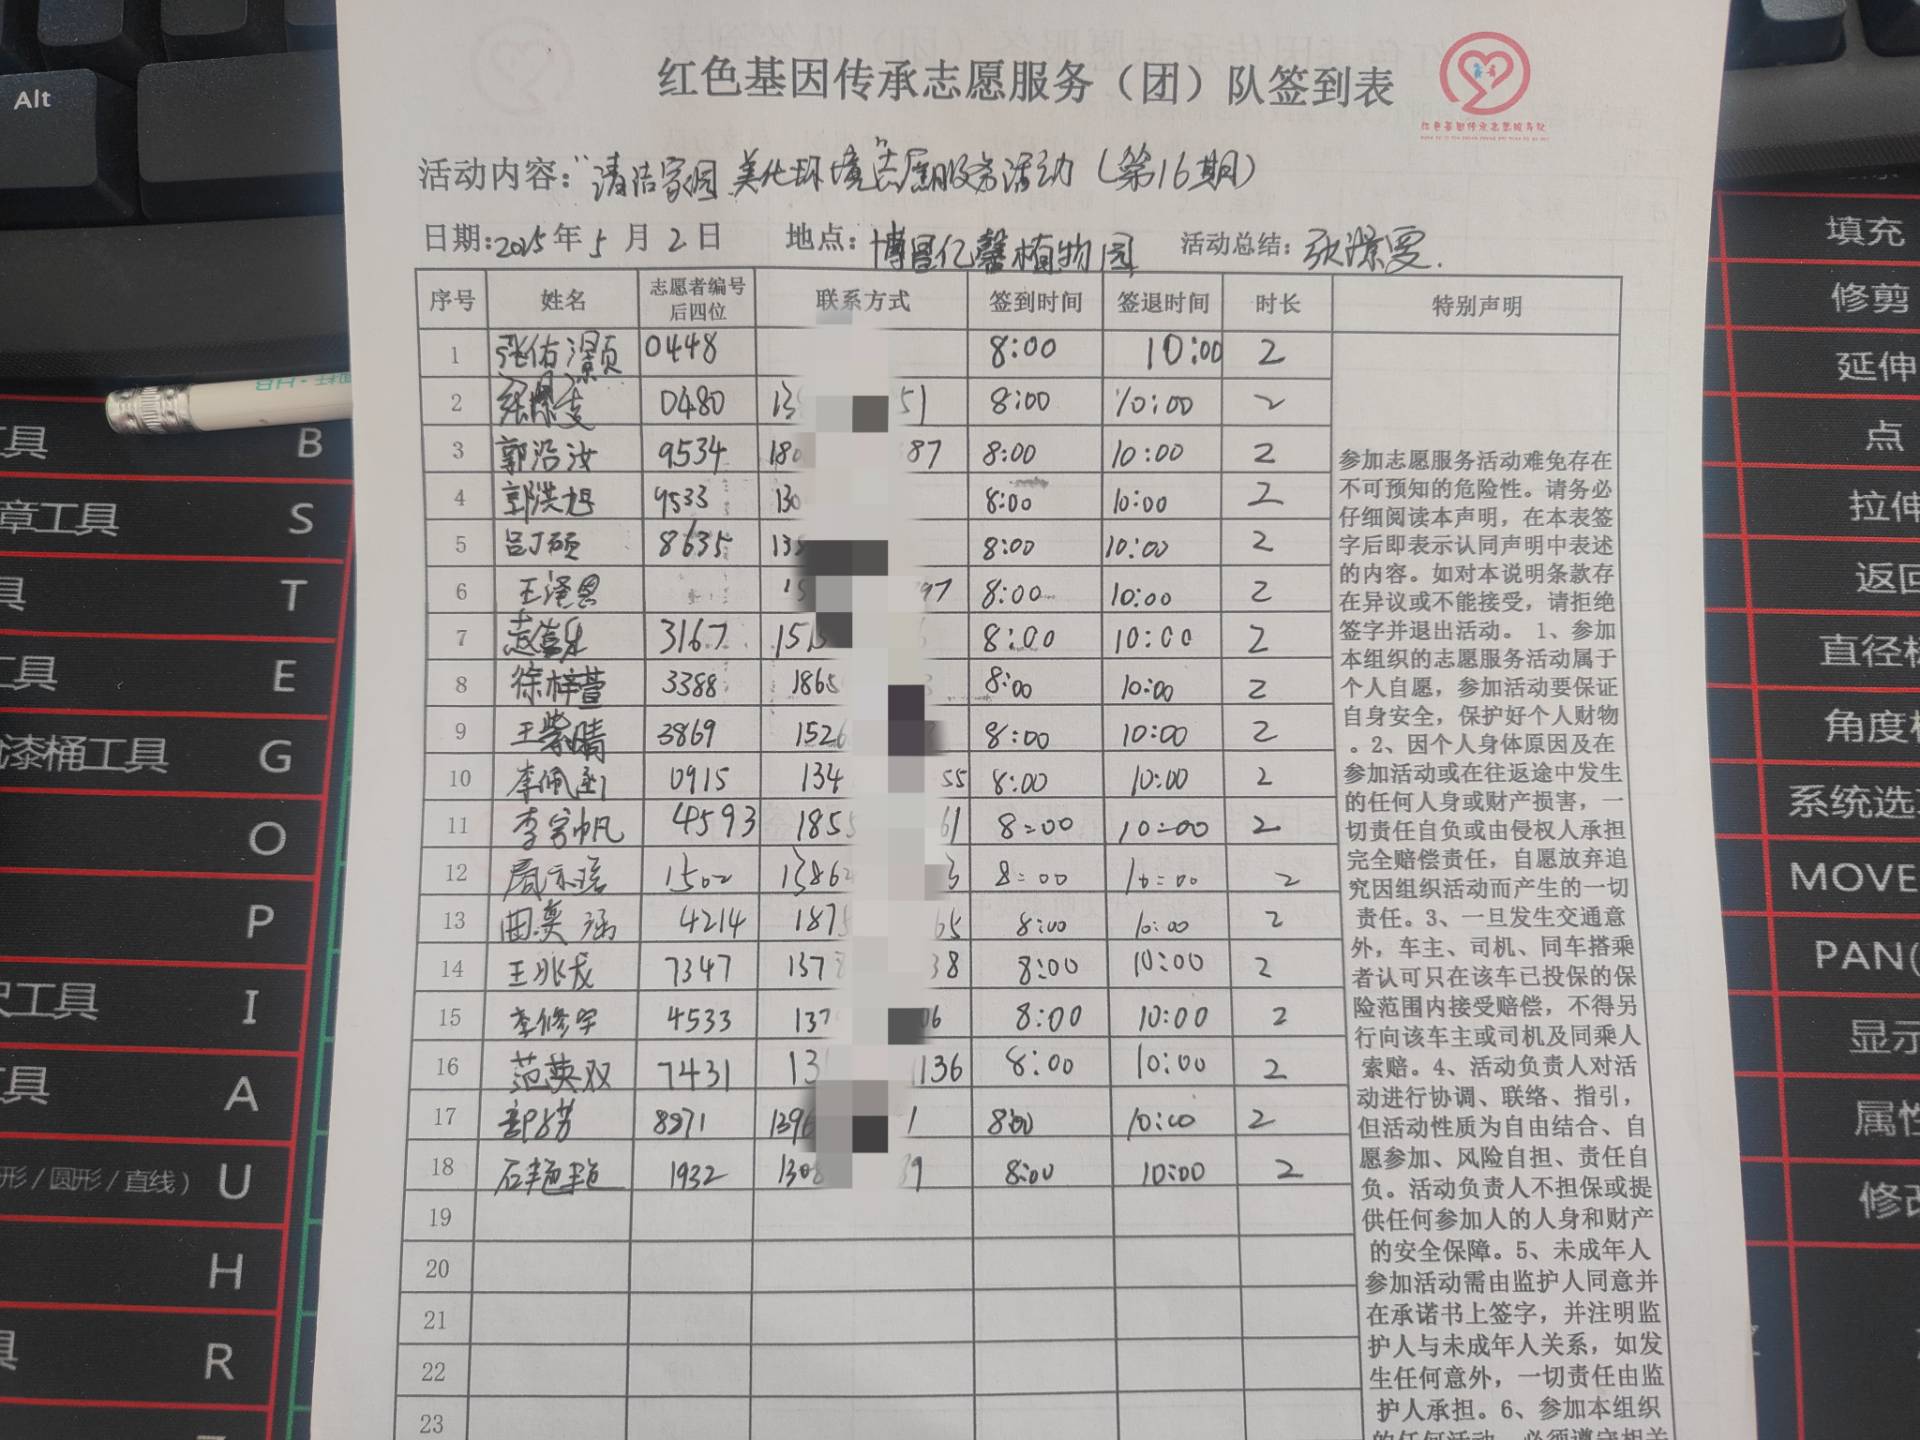 Alt
红色基因传承志愿服务（团）队签到表
红色基因传承志愿服务队
活动内容："清洁家园 美化环境"志愿服务活动（第16期）
日期:2025年5月2日 地点:博昌亿馨植物园 活动总结:
序号 姓名 志愿者编号后四位 联系方式 签到时间 签退时间 时长 特别声明
1 张佑灏 0448 8:00 10:00 2
2 0480 13 51 8:00 10:00 2
3 郭沿汝 9534 180 87 8:00 10:00 2
4 郭洪旭 9533 130 8:00 10:00 2
5 吕丁硕 8635 13 8:00 10:00 2
6 王泽恩 15 97 8:00 10:00 2
7 3167 151 8:00 10:00 2
8 徐梓萱 3388 1865 8:00 10:00 2
9 王紫晴 3869 1526 8:00 10:00 2
10 李佩 0915 134 55 8:00 10:00 2
11 李宗帆 4593 1855 61 8:00 10:00 2
12 周亦瑶 1502 1386 3 8:00 10:00 2
13 曲奕涵 4214 187 65 8:00 10:00 2
14 王兆龙 7347 137 38 8:00 10:00 2
15 李修宇 4533 137 06 8:00 10:00 2
16 范英双 7431 13 136 8:00 10:00 2
17 8871 1396 1 8:00 10:00 2
18 石艳艳 1932 1308 39 8:00 10:00 2
19
20
21
22
23
参加志愿服务活动难免存在
不可预知的危险性。请务必
仔细阅读本声明，在本表签
字后即表示认同声明中表述
的内容。如对本说明条款存
在异议或不能接受，请拒绝
签字并退出活动。1、参加
本组织的志愿服务活动属于
个人自愿，参加活动要保证
自身安全，保护好个人财物
。2、因个人身体原因及在
参加活动或在往返途中发生
的任何人身或财产损害，一
切责任自负或由侵权人承担
完全赔偿责任，自愿放弃追
究因组织活动而产生的一切
责任。3、一旦发生交通意
外，车主、司机、同车搭乘
者认可只在该车已投保的保
险范围内接受赔偿，不得另
行向该车主或司机及同乘人
索赔。4、活动负责人对活
动进行协调、联络、指引，
但活动性质为自由结合、自
愿参加、风险自担、责任自
负。活动负责人不担保或提
供任何参加人的人身和财产
的安全保障。5、未成年人
参加活动需由监护人同意并
在承诺书上签字，并注明监
护人与未成年人关系，如发
生任何意外，一切责任由监
护人承担。6、参加本组织
的任何活动，必须遵守相关
工具 B
章工具 S
具 T
工具 E
油漆桶工具 G
O
P
尺工具 I
工具 A
形/圆形/直线） U
H
具 R
填充
修剪
延伸
点
拉伸
返回
直径标
角度标
系统选
MOVE
PAN(
显示
属性
修改